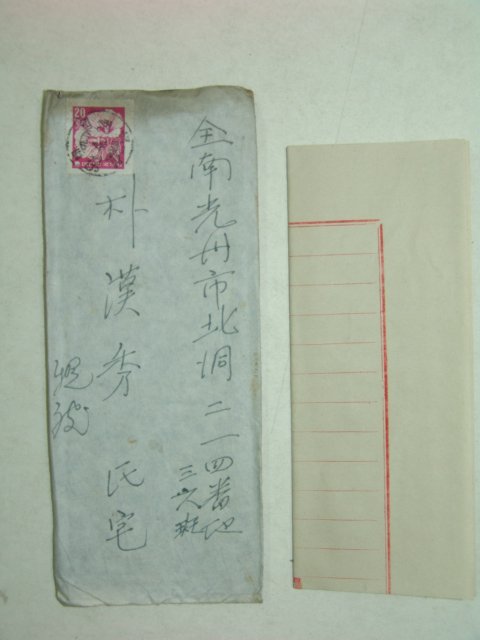 20
全南光州市北洞二一四番地
三六班
朴漢秀氏宅